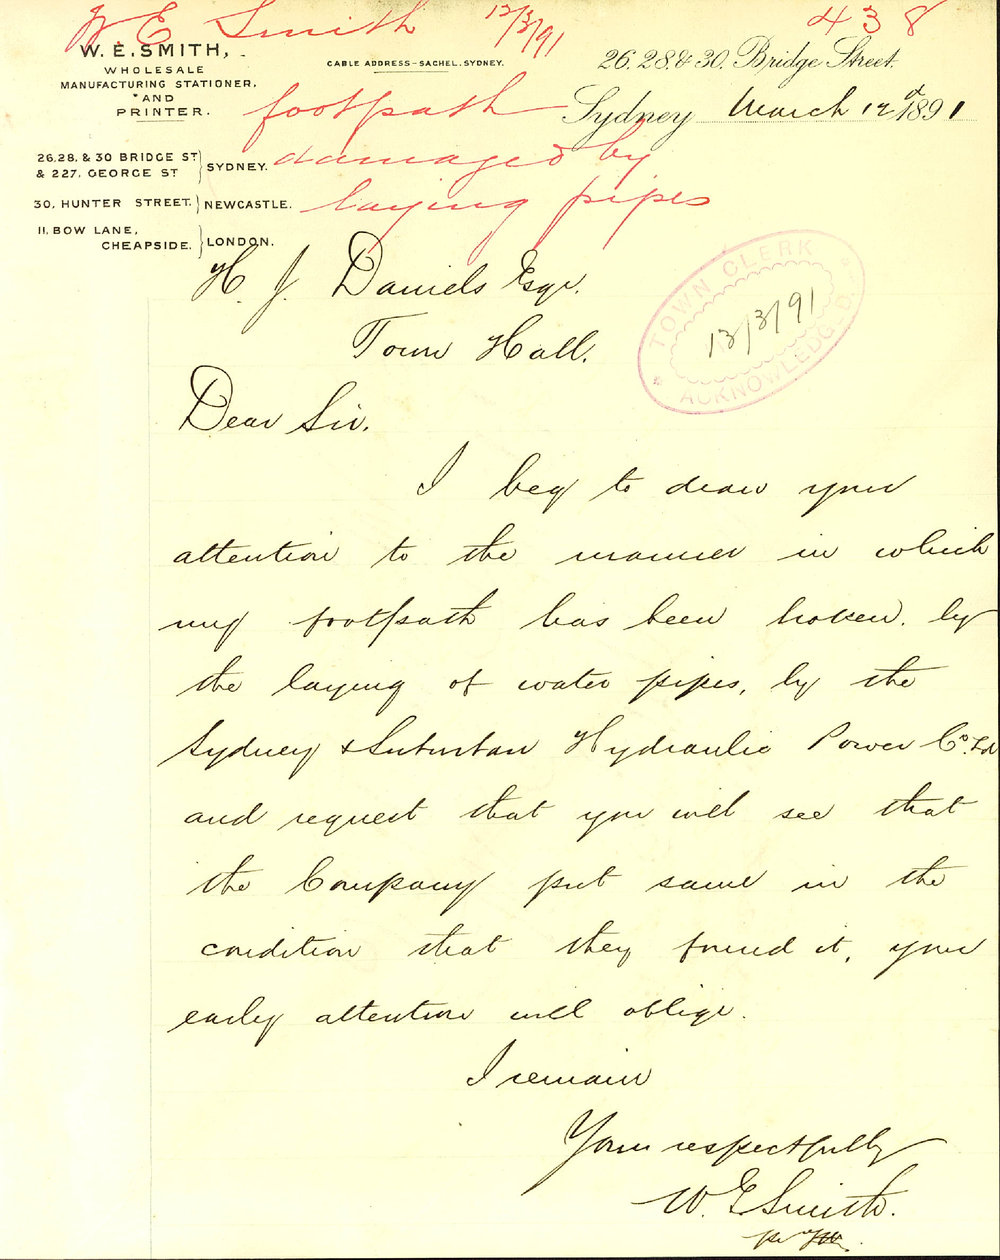 W. E. Smith 12/3/91 438
W. E. SMITH,
WHOLESALE
MANUFACTURING STATIONER,
AND
PRINTER.
CABLE ADDRESS-SACHEL, SYDNEY.
26.28.& 30. Bridge Street.
Sydney March 12 1891
footpath
damaged by
laying pipes
26.28. & 30 BRIDGE ST
& 227. GEORGE ST } SYDNEY.
30, HUNTER STREET. } NEWCASTLE.
11, BOW LANE,
CHEAPSIDE. } LONDON.
TOWN CLERK
13/3/91
ACKNOWLEDG'D.
H. J. Daniels Esqr.
Town Hall.
Dear Sir.
I beg to draw your
attention to the manner in which
my footpath has been broken. by
the laying of water pipes, by the
Sydney & Suburban Hydraulic Power Co. Ld
and request that you will see that
the Company put same in the
condition that they found it, your
early attention will oblige.
I remain
Yours respectfully
W. E Smith.
pr